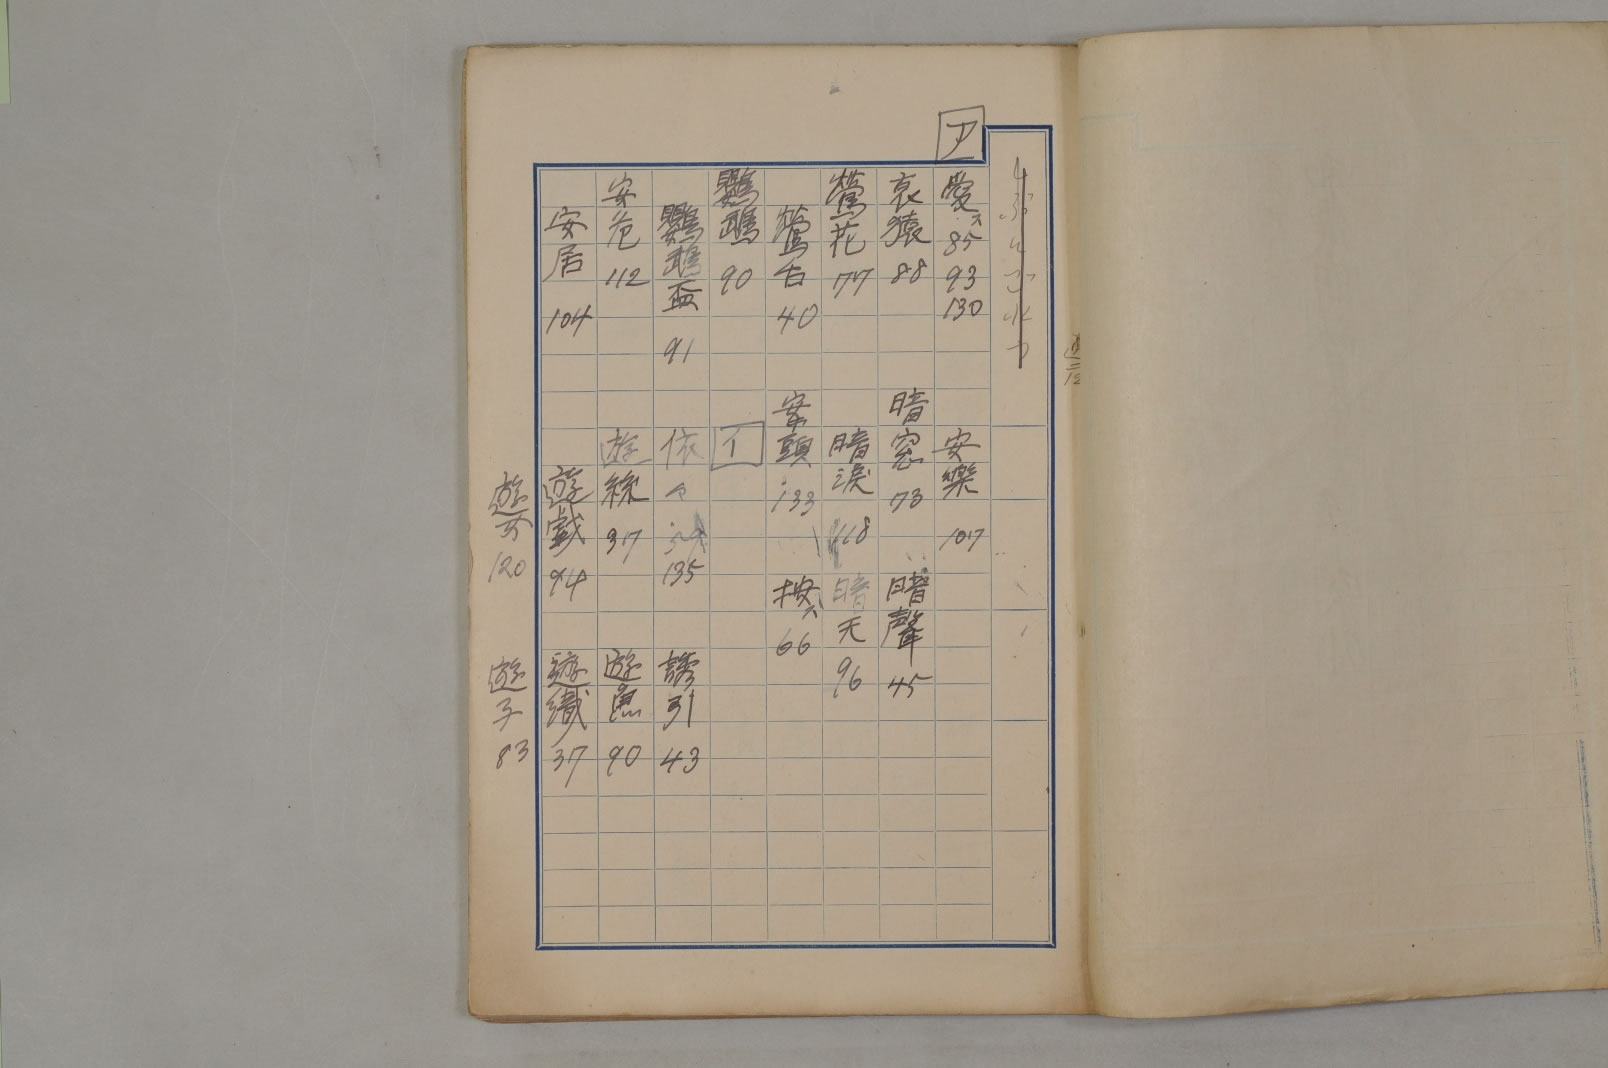 ア
愛 85 93 130
安樂 107
哀猿 88
暗窓 73
暗聲 45
鶯花 77
暗涙 118
暗天 96
鶯台 40
案頭 133
按 66
鸚鵡 90
イ
鸚鵡盃 91
依々 135
誘引 43
安危 112
遊絲 37
遊魚 90
安居 104
遊戯 94
遊織 37
遊 120
遊子 83